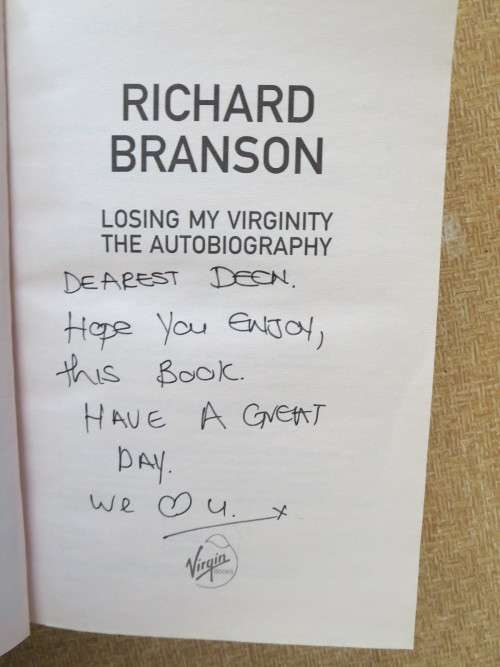 RICHARD
BRANSON
LOSING MY VIRGINITY
THE AUTOBIOGRAPHY
DEAREST DEEN.
Hope You ENJOY,
this BOOK.
HAVE A GREAT
DAY.
we ♡ u. x
Virgin
BOOKS